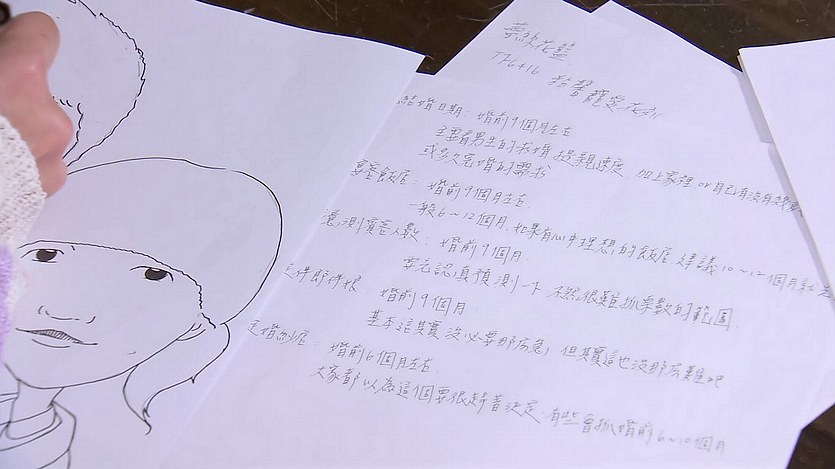 夢綠花籃
TF6416
結婚日期：婚前9個月左右
主要看男生的求婚、提親速度 加上家裡 or 自己有沒有
或多久完婚的需求
宴客飯店：婚前9個月左右
一般6~12個月，如果有心中理想的飯店，建議10~12個月
預測賓客人數：婚前9個月
要先認真預測一下，不然很難抓桌數的範圍
婚前9個月
基本這其實沒必要那麼急，但其實這也沒那麼難吧
婚前6個月左右
大家都以為這個要很趕著決定，有些會抓婚前6~10個月